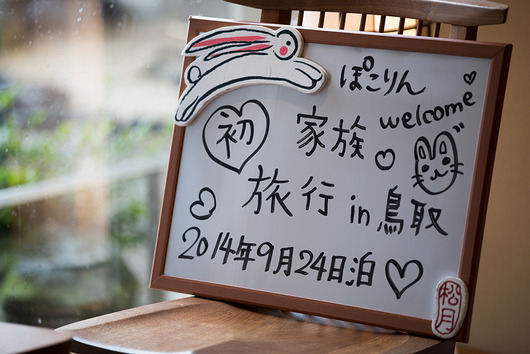 ぽこりん
welcome
初 家族
旅行 in 鳥取
2014年9月24日泊
松月